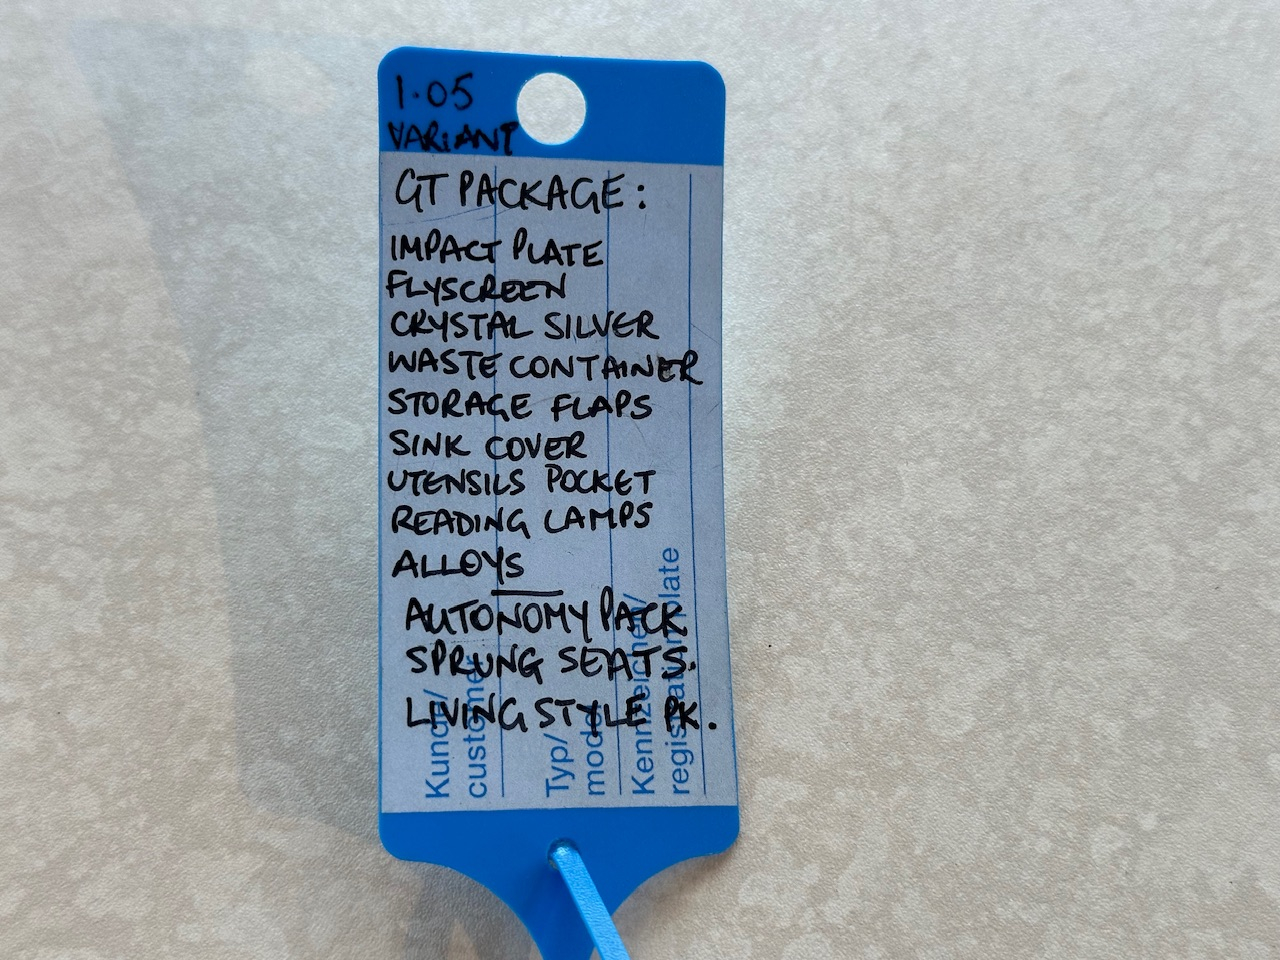 1.05
VARIANT
GT PACKAGE:
IMPACT PLATE
FLYSCREEN
CRYSTAL SILVER
WASTE CONTAINER
STORAGE FLAPS
SINK COVER
UTENSILS POCKET
READING LAMPS
ALLOYS
AUTONOMY PACK
SPRUNG SEATS.
LIVING STYLE PK.
Kunde/
customer
Typ/
model
Kennzeichen/
registration plate